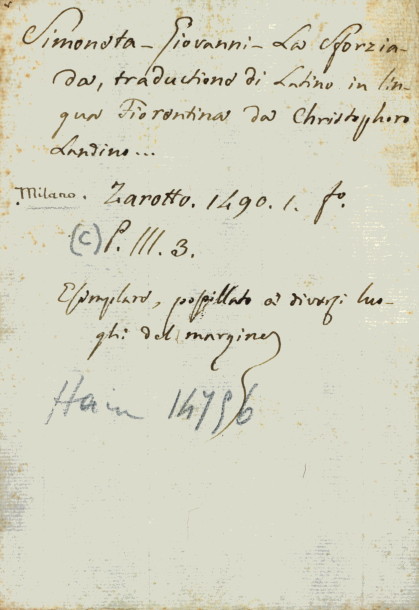 Simoneta - Giovanni - La Sforzia-
da, traductione di Latino in lin-
gua Fiorentina da Christophoro
Landino...
Milano. Zarotto. 1490. 1. fo.
(C) P. III. 3.
Esemplare, postillato a diversi luo-
ghi del margine
Hain 14756